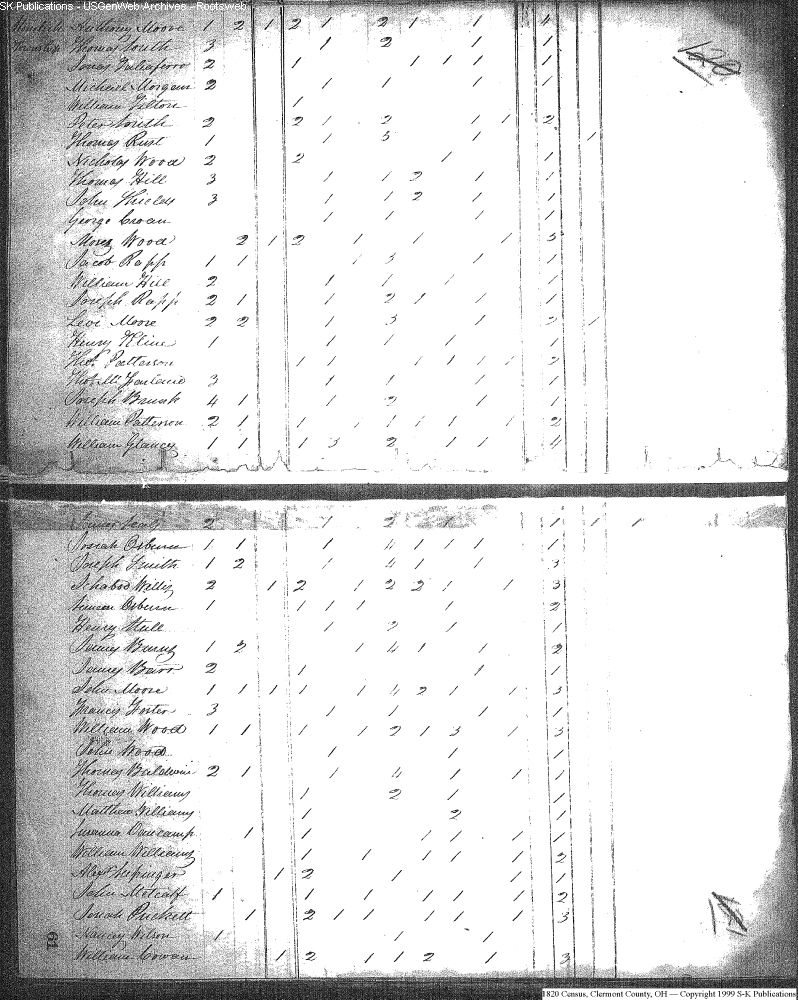 SK Publications - USGenWeb Archives - Rootsweb
Anthony Moore 1 2 1 2 1 2 1 1 4
Township Thomas South 3 1 2 1 1
Jonas Taliaferro 2 1 1 1 1 1
Michael Morgan 2 1 1 1 1
William Tilton 1
Peter South 2 2 1 2 1 1 2
Thomas Rust 1 1 3 1 1 1
Nicholas Wood 2 2 1 1
Thomas Hill 3 1 1 2 1 1
John Shields 3 1 1 2 1 1
George Cowan 1 1 1 1
Moses Wood 2 1 2 1 1 1 3
Jacob Rapp 1 1 1 3 1 1
William Hill 2 1 1 1 1
Joseph Rapp 2 1 1 2 1 1 1
Levi Moore 2 2 1 3 1 2 1
Henry Kline 1 1 1 1 1
Thos. Patterson 1 1 1 1 1 1 2
Thos. McFarland 3 1 1 1 1
Joseph Brunk 4 1 1 2 1 1
William Patterson 2 1 1 1 1 1 1 1 2
William Glancy 1 1 1 3 2 1 1 4
120
2 1 2 1 1 1 1
Josiah Osburn 1 1 1 4 1 1 1 1
Joseph Smith 1 2 1 4 1 1 3
Ichabod Willis 2 1 2 1 2 2 1 1 3
Simeon Osburn 1 1 1 1 1 2
Henry Stull 1 2 1 1
James Burns 1 2 1 4 1 1 2
James Barr 2 1 1 1
John Moore 1 1 1 1 1 4 2 1 1 3
Francis Foster 3 1 1 1 1
William Wood 1 1 1 1 2 1 3 1 3
John Wood 1 1 1
Thomas Baldwin 2 1 1 4 1 1 1
Thomas Williams 1 2 1 1
Matthew Williams 1 2 1
Susanna Beucamp 1 1 1 1 1 1
William Williams 1 1 1 1 1 2
Alexr. 1 2 1 1 1
John Metcalf 1 1 1 1 1 1 2
Josiah Puckett 1 2 1 1 1 1 1 3
Nancy Wilson 1 1 1 1
William Cowan 1 2 1 1 2 1 3
61
1820 Census, Clermont County, OH — Copyright 1999 S-K Publications